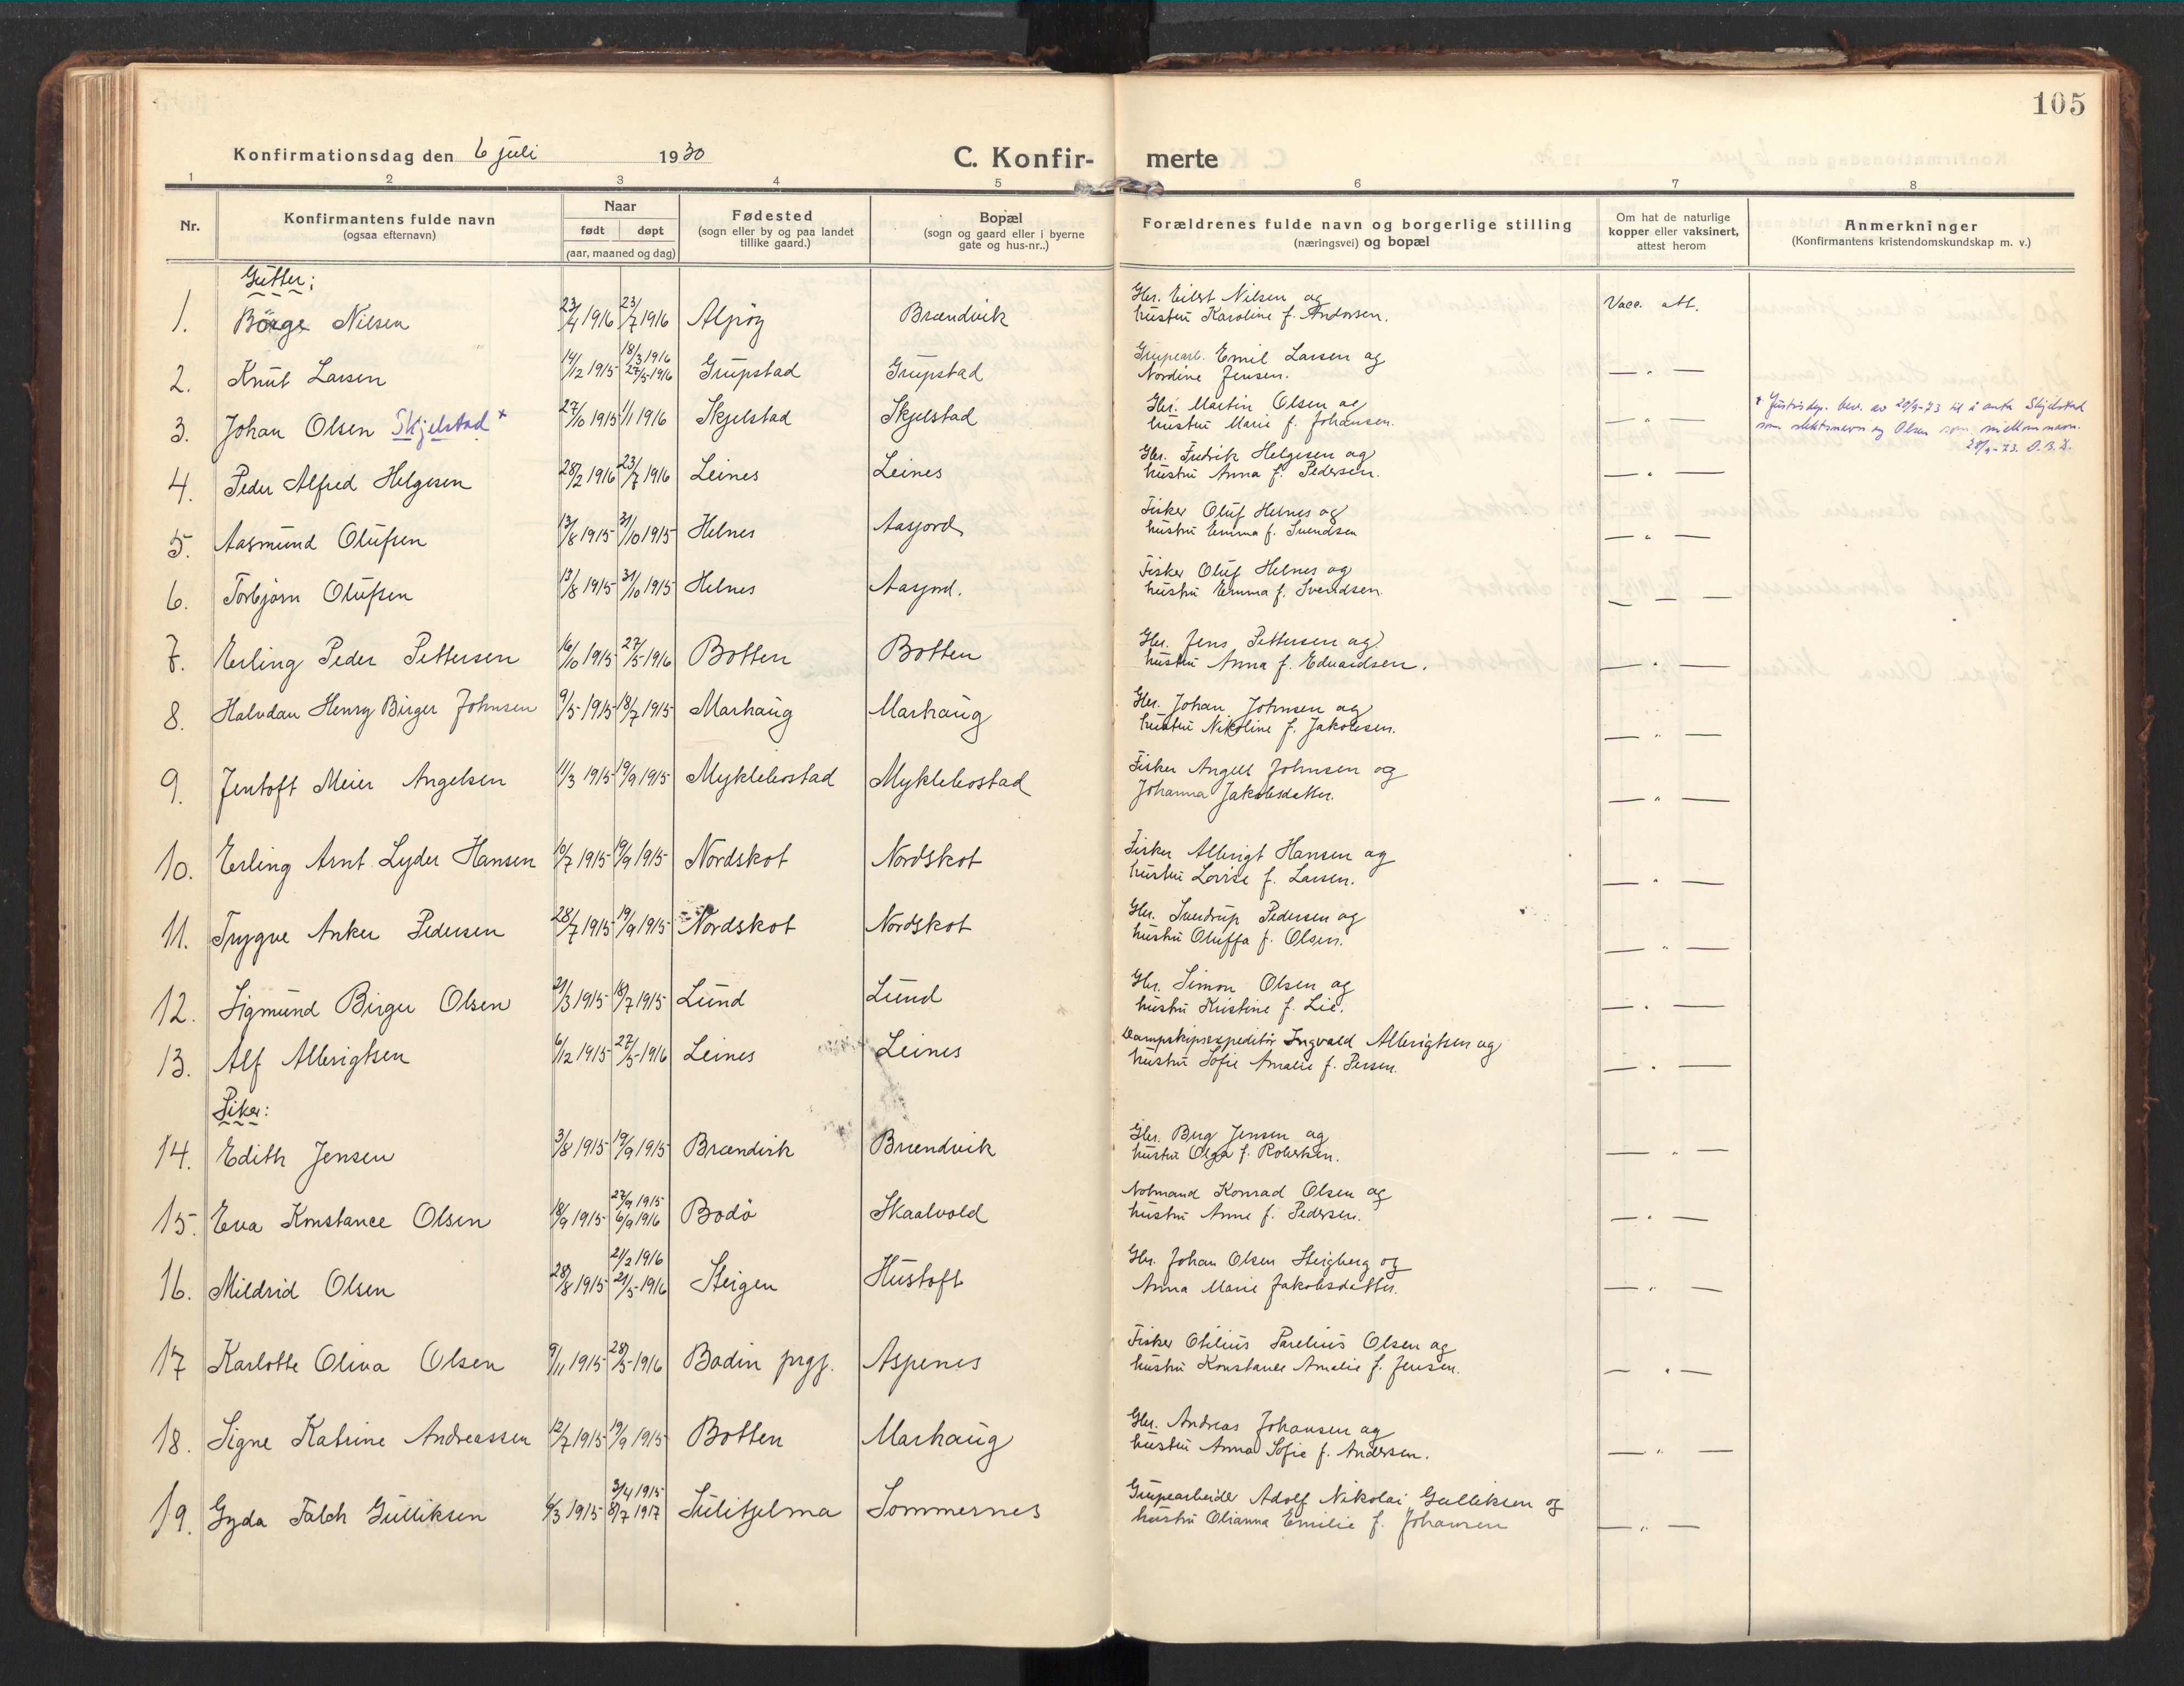 105
Konfirmationsdag den 6 juli 1930
C. Konfir- merte
1 2 3 4 5 6 7 8
Nr.
Konfirmantens fulde navn
(ogsaa efternavn)
Naar
født døpt
(aar, maaned og dag)
Fødested
(sogn eller by og paa landet
tillike gaard.)
Bopæl
(sogn og gaard eller i byerne
gate og hus-nr..)
Forældrenes fulde navn og borgerlige stilling
(næringsvei) og bopæl
Om hat de naturlige
kopper eller vaksinert,
attest herom
Anmerkninger
(Konfirmantens kristendomskundskap m. v.)
Gutter:
1. Börge Nilsen 23/4 1916 23/7 1916 Alpöy Brændvik Gbr. Eilert Nilsen og
hustru Karoline f. Andorsen. Vacc. att.
2. Knut Larsen 14/12 1915 18/3 1916 27/5-1916 Grupstad Grupstad Grupearb. Emil Larsen og
Nordine Jensen. — " —
3. Johan Olsen Skjelstad + 27/10 1915 1/1 1916 Skjelstad Skjelstad Gbr. Martin Olsen og
hustru Marie f. Johansen. — " —
+ Justisdep. bev. av 20/9-73 til å anta Skjelstad
som slektsnavn og Olsen som mellomnavn.
28/9-73. O.B.L.
4. Peder Alfred Helgesen 28/2 1916 23/7 1916 Leines Leines Gbr. Fredrik Helgesen og
hustru Anna f. Pedersen. — " —
5. Aasmund Olufsen 13/8 1915 31/10 1915 Helnes Aasjord Fisker Oluf Helnes og
hustru Emma f. Svendsen — " —
6. Torbjørn Olufsen 13/8 1915 31/10 1915 Helnes Aasjord. Fisker Oluf Helnes og
hustru Emma f. Svendsen. — — —
7. Erling Peder Pettersen 16/10 1915 27/5-1916 Botten Botten Gbr. Jens Pettersen og
hustru Anna f. Edvardsen. — " —
8. Halvdan Henry Birger Johnsen 9/5-1915 18/7 1915 Marhaug Marhaug Gbr. Johan Johnsen og
hustru Nikoline f. Jakobsen. — " —
9. Jentoft Meier Angelsen 11/3 1915 19/9 1915 Myklebostad Myklebostad Fisker Angell Johnsen og
Johanna Jakobsdatter. — " —
10. Erling Arnt Lyder Hansen 10/7 1915 19/9 1915 Nordskot Nordskot Fisker Albrigt Hansen og
hustru Lovise f. Larsen. — " —
11. Trygve Anker Pedersen 28/7 1915 19/9 1915 Nordskot Nordskot Gbr. Sverdrup Pedersen og
hustru Oluffa f. Olsen. — " —
12. Sigmund Birger Olsen 21/3 1915 18/7 1915 Lund Lund Gbr. Simon Olsen og
hustru Kristine f. Lie. — " —
13. Alf Albrigtsen 6/12 1915 27/5-1916 Leines Leines Dampskipsexpeditör Ingvald Albrigtsen og
hustru Sofie Amalie f. Persen. — " —
Piker:
14. Edith Jensen 3/8 1915 19/9 1915 Brændvik Brændvik Gbr. Berg Jensen og
hustru Olga f. Robertsen. — " —
15. Eva Konstance Olsen 18/9 1915 27/9 1915 6/9 1916 Bodö Skaalvold Notmand Konrad Olsen og
hustru Anne f. Pedersen. — " —
16. Mildrid Olsen 28/8 1915 21/2 1916 21/5-1916 Steigen Hustoft Gbr. Johan Olsen Steigberg og
Anna Marie Jakobsdatter. — " —
17 Karlotte Oliva Olsen 9/11 1915 28/5-1916 Bodin prgj. Aspenes Fisker Otilius Parelius Olsen og
hustru Konstance Amalie f. Jensen. — " —
18. Signe Katrine Andreassen 12/7 1915 19/9 1915 Botten Marhaug Gbr. Andreas Johansen og
hustru Anna Sofie f. Andersen. — " —
19. Gyda Falch Gulliksen 6/3 1915 3/4 1915 8/7 1917 Sulitjelma Sommernes Grupearbeider Adolf Nikolai Gulliksen og
hustru Olianna Emilie f. Johansen — " —